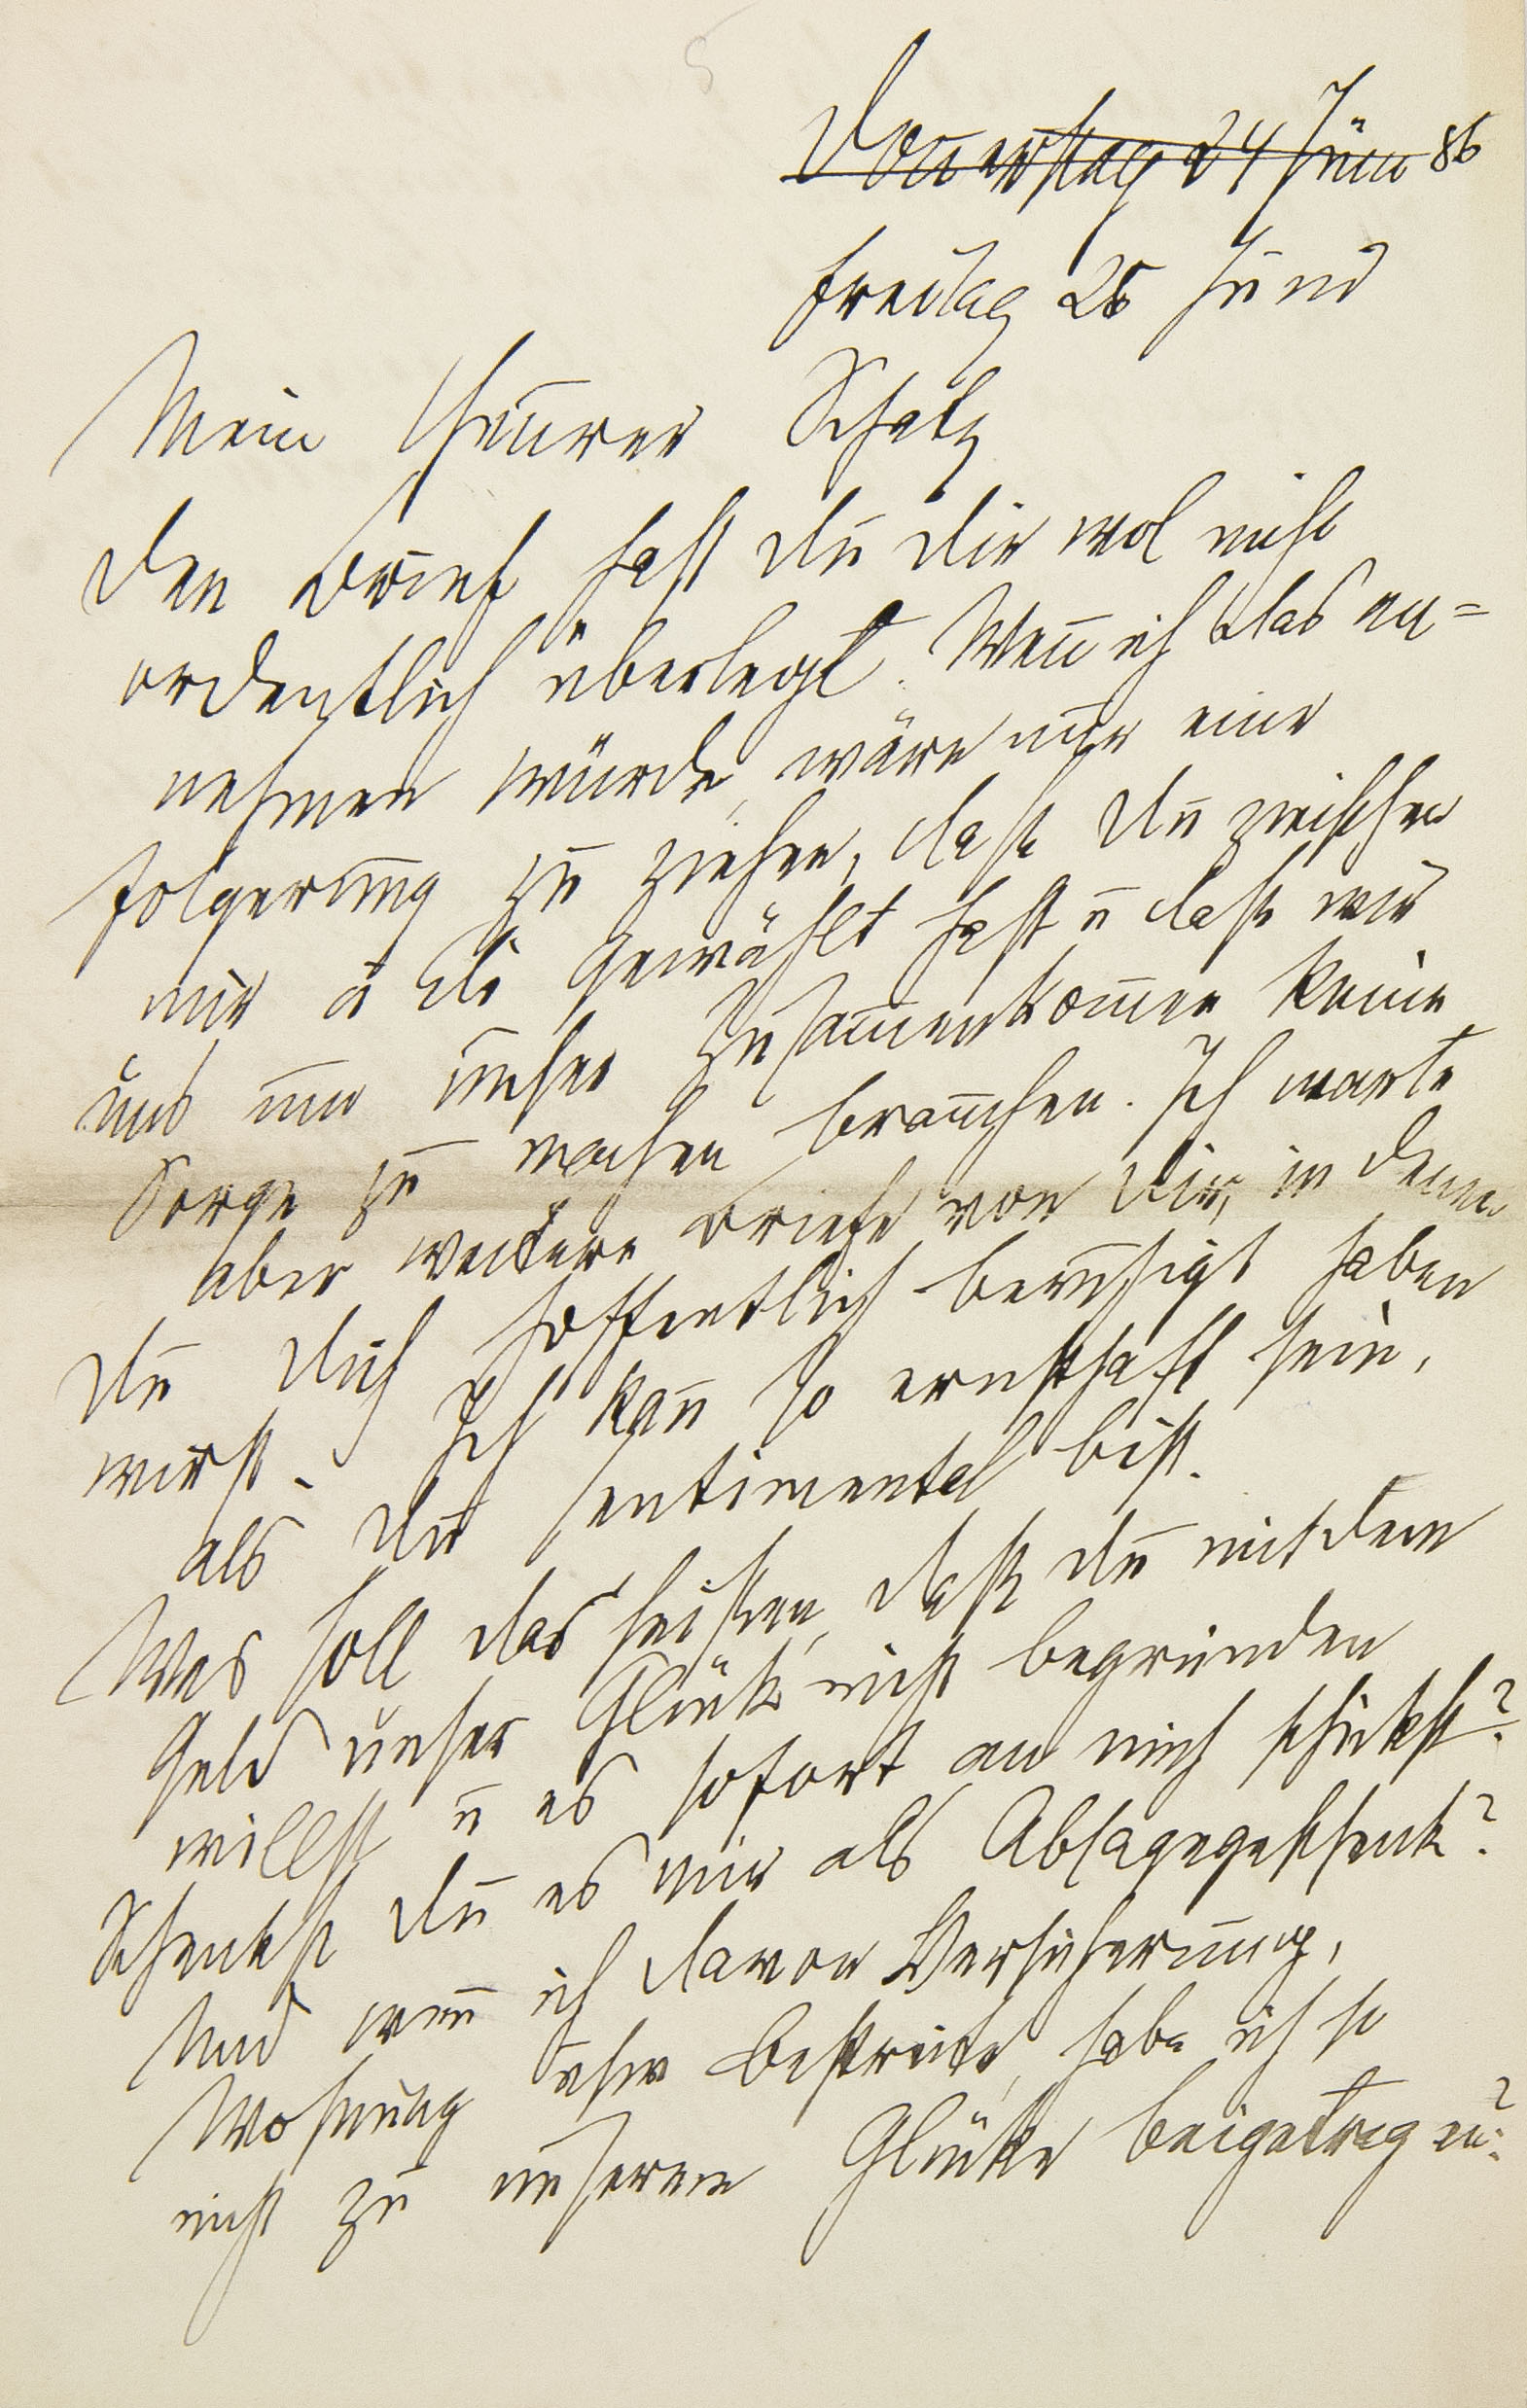 Donnerstag 24 Juni 86
Freitag 25 Juni
Mein theurer Schatz
Den Brief hast Du Dir wol nicht
ordentlich überlegt. Wenn ich das an=
nehmen würde, wäre nur eine
Folgerung zu ziehen, daß Du zwischen
mir u Eli gewählt hast u daß wir
uns um unser Zusammenkommen keine
Sorge zu machen brauchen. Ich warte
aber weitere Briefe von Dir, in denen
Du Dich hoffentlich beruhigt haben
wirst. Ich kann so ernsthaft sein,
als Du sentimental bist.
Was soll das heißen, daß Du mit dem
Geld unser Glück nicht begründen
willst u es sofort an mich schickst?
Schenkst Du es mir als Absagegeschenk?
Und wenn ich davon Versicherung,
Wohnung usw bestreite, habe ich so
nicht zu unserem Glücke beigetragen?